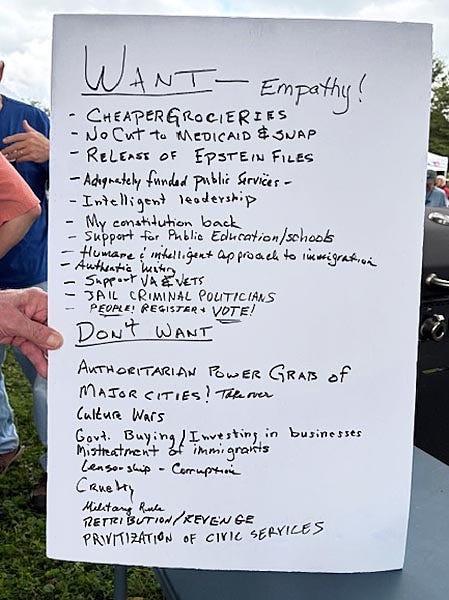 WANT — Empathy!
- CHEAPER GROCIERIES
- No Cut to MEDICAID & SNAP
- RELEASE OF EPSTEIN FILES
- Adequately funded public services -
- Intelligent leadership
- My constitution back
- Support for Public Education/schools
- Humane & intelligent approach to immigration
- Authentic history
- Support VA & VETS
- JAIL CRIMINAL POLITICIANS
- PEOPLE! REGISTER + VOTE!
DON'T WANT
AUTHORITARIAN POWER GRAB of
MAJOR CITIES! Takeover
Culture Wars
Govt. Buying/Investing in businesses
Mistreatment of immigrants
Censorship - Corruption
Cruelty
Military Rule
RETRIBUTION/REVENGE
PRIVITIZATION OF CIVIC SERVICES